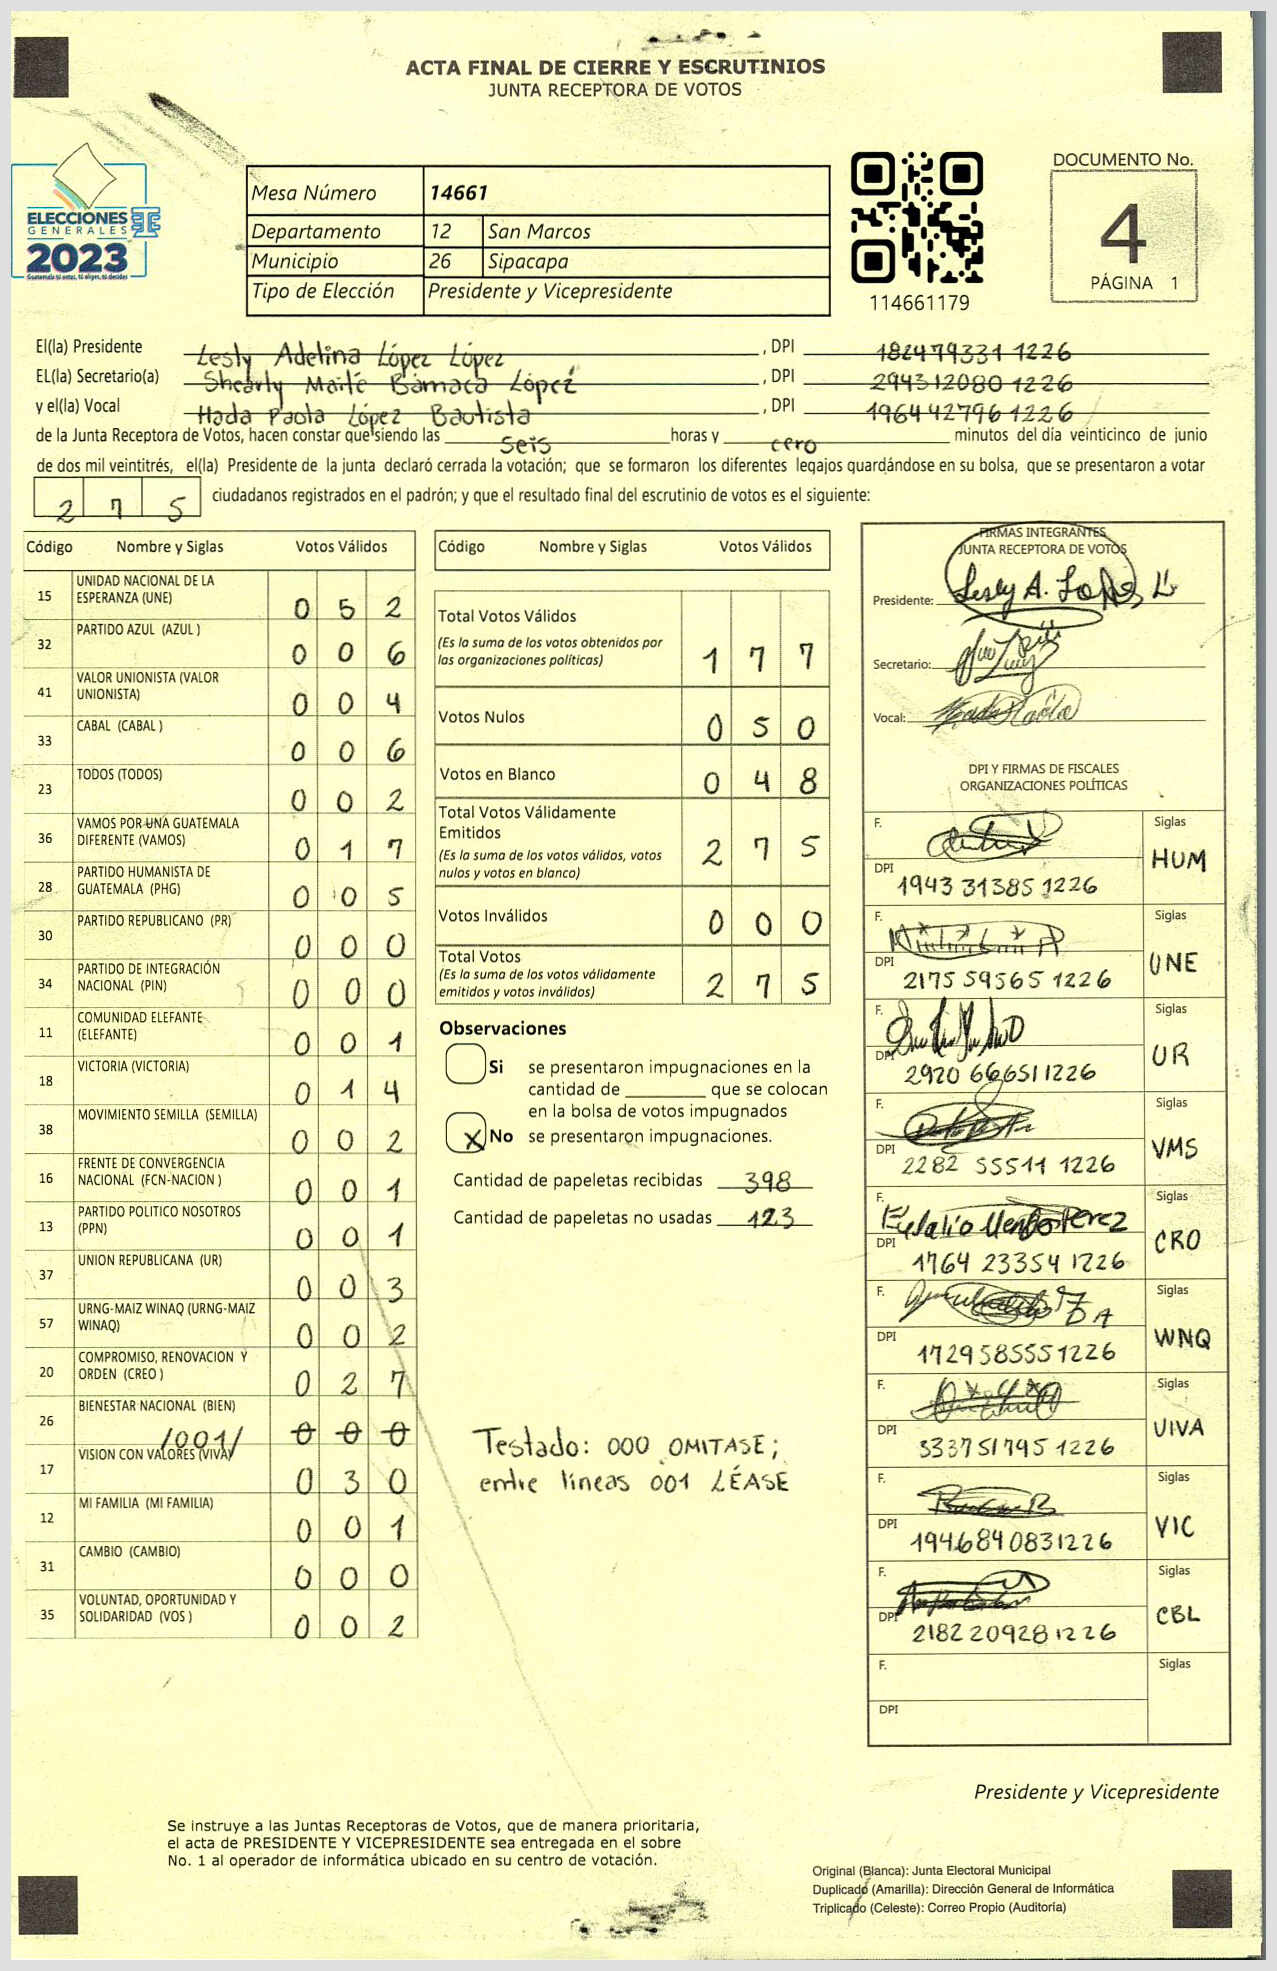 ACTA FINAL DE CIERRE Y ESCRUTINIOS
JUNTA RECEPTORA DE VOTOS
ELECCIONES
GENERALES
2023
Mesa Número 14661
Departamento 12 San Marcos
Municipio 26 Sipacapa
Tipo de Elección Presidente y Vicepresidente
114661179
DOCUMENTO No.
4
PÁGINA 1
El(la) Presidente Lesly Adelina López López, DPI 182479331 1226
EL(la) Secretario(a) Shearly Maité Bámaca López, DPI 294312080 1226
y el(la) Vocal Hada Paola López Bautista, DPI 196442796 1226
de la Junta Receptora de Votos, hacen constar que siendo las seis horas y cero minutos del día veinticinco de junio
de dos mil veintitrés, el(la) Presidente de la junta declaró cerrada la votación; que se formaron los diferentes legajos guardándose en su bolsa, que se presentaron a votar
2 7 5 ciudadanos registrados en el padrón; y que el resultado final del escrutinio de votos es el siguiente:
Código Nombre y Siglas Votos Válidos
15 UNIDAD NACIONAL DE LA
ESPERANZA (UNE) 0 5 2
32 PARTIDO AZUL (AZUL ) 0 0 6
41 VALOR UNIONISTA (VALOR
UNIONISTA) 0 0 4
33 CABAL (CABAL ) 0 0 6
23 TODOS (TODOS) 0 0 2
36 VAMOS POR UNA GUATEMALA
DIFERENTE (VAMOS) 0 1 7
28 PARTIDO HUMANISTA DE
GUATEMALA (PHG) 0 0 5
30 PARTIDO REPUBLICANO (PR) 0 0 0
34 PARTIDO DE INTEGRACIÓN
NACIONAL (PIN) 0 0 0
11 COMUNIDAD ELEFANTE
(ELEFANTE) 0 0 1
18 VICTORIA (VICTORIA) 0 1 4
38 MOVIMIENTO SEMILLA (SEMILLA) 0 0 2
16 FRENTE DE CONVERGENCIA
NACIONAL (FCN-NACION ) 0 0 1
13 PARTIDO POLITICO NOSOTROS
(PPN) 0 0 1
37 UNION REPUBLICANA (UR) 0 0 3
57 URNG-MAIZ WINAQ (URNG-MAIZ
WINAQ) 0 0 2
20 COMPROMISO, RENOVACION Y
ORDEN (CREO ) 0 2 7
26 BIENESTAR NACIONAL (BIEN) 0 0 0
/001/
17 VISION CON VALORES (VIVA) 0 3 0
12 MI FAMILIA (MI FAMILIA) 0 0 1
31 CAMBIO (CAMBIO) 0 0 0
35 VOLUNTAD, OPORTUNIDAD Y
SOLIDARIDAD (VOS ) 0 0 2
Código Nombre y Siglas Votos Válidos
Total Votos Válidos
(Es la suma de los votos obtenidos por
las organizaciones políticas) 1 7 7
Votos Nulos 0 5 0
Votos en Blanco 0 4 8
Total Votos Válidamente
Emitidos
(Es la suma de los votos válidos, votos
nulos y votos en blanco) 2 7 5
Votos Inválidos 0 0 0
Total Votos
(Es la suma de los votos válidamente
emitidos y votos inválidos) 2 7 5
Observaciones
Si se presentaron impugnaciones en la
cantidad de ________ que se colocan
en la bolsa de votos impugnados
X No se presentaron impugnaciones.
Cantidad de papeletas recibidas 398
Cantidad de papeletas no usadas 123
Testado: 000 OMITASE;
entre líneas 001 LÉASE
FIRMAS INTEGRANTES
JUNTA RECEPTORA DE VOTOS
Presidente: Lesly A. López L
Secretario:
Vocal:
DPI Y FIRMAS DE FISCALES
ORGANIZACIONES POLÍTICAS
F. Siglas
DPI 1943 31385 1226 HUM
F. Siglas
DPI 2175 59565 1226 UNE
F. Siglas
DPI 2920 66651 1226 UR
F. Siglas
DPI 2282 55511 1226 VMS
F. Siglas
DPI 1764 23354 1226 CRO
F. Siglas
DPI 1729585551226 WNQ
F. Siglas
DPI 333751795 1226 VIVA
F. Siglas
DPI 1946840831226 VIC
F. Siglas
DPI 2182209281226 CBL
F. Siglas
DPI
Presidente y Vicepresidente
Se instruye a las Juntas Receptoras de Votos, que de manera prioritaria,
el acta de PRESIDENTE Y VICEPRESIDENTE sea entregada en el sobre
No. 1 al operador de informática ubicado en su centro de votación.
Original (Blanca): Junta Electoral Municipal
Duplicado (Amarilla): Dirección General de Informática
Triplicado (Celeste): Correo Propio (Auditoría)